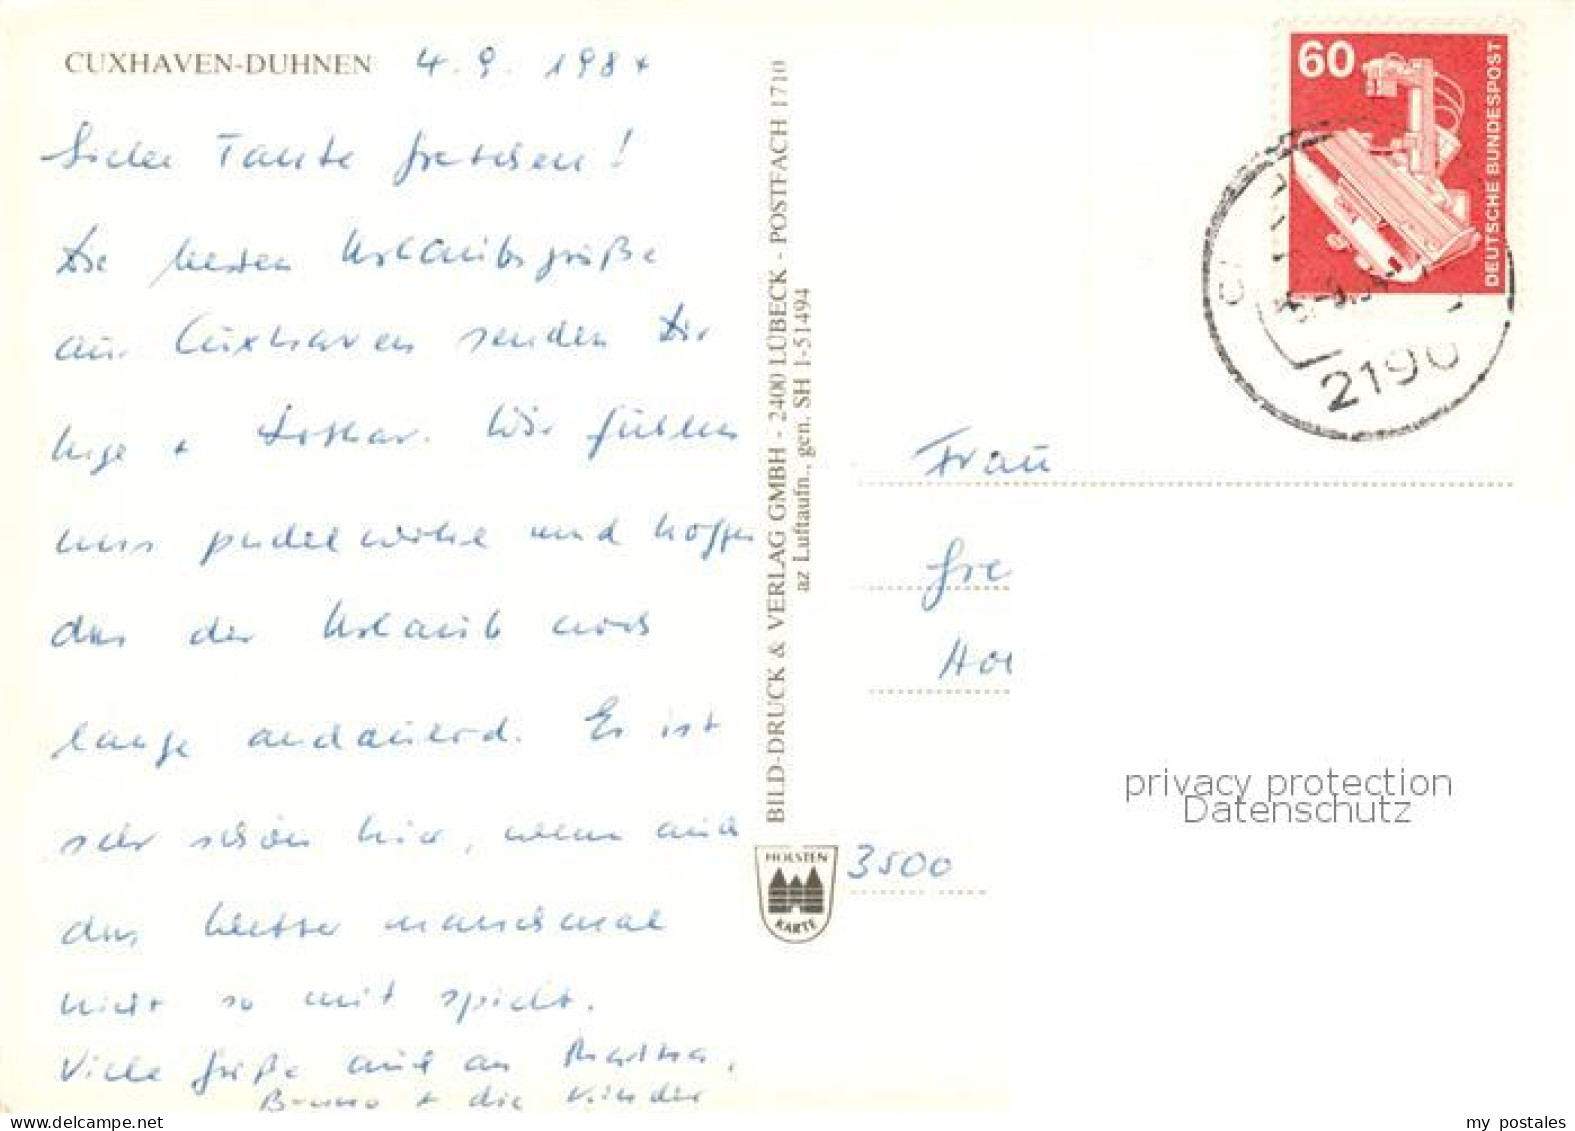 CUXHAVEN-DUHNEN 4.9.1984
Liebe Tante Gretchen!
Die besten Urlaubsgrüße
aus Cuxhaven senden Dir
Inge + Lothar. Wir fühlen
uns pudelwohl und hoffen
das der Urlaub noch
lange andauerd. Es ist
sehr schön hier, wenn auch
das Wetter manchmal
nicht so mit spielt.
Viele Grüße auch an Martina,
Bruno + die Kinder
BILD-DRUCK & VERLAG GMBH - 2400 LÜBECK - POSTFACH 1710
az Luftaufn., gen. SH 1-51494
HOLSTEN
KARTE
60
DEUTSCHE BUNDESPOST
2190
Frau
Gre
Hol
3500
privacy protection
Datenschutz
delcampe.net
my_postales